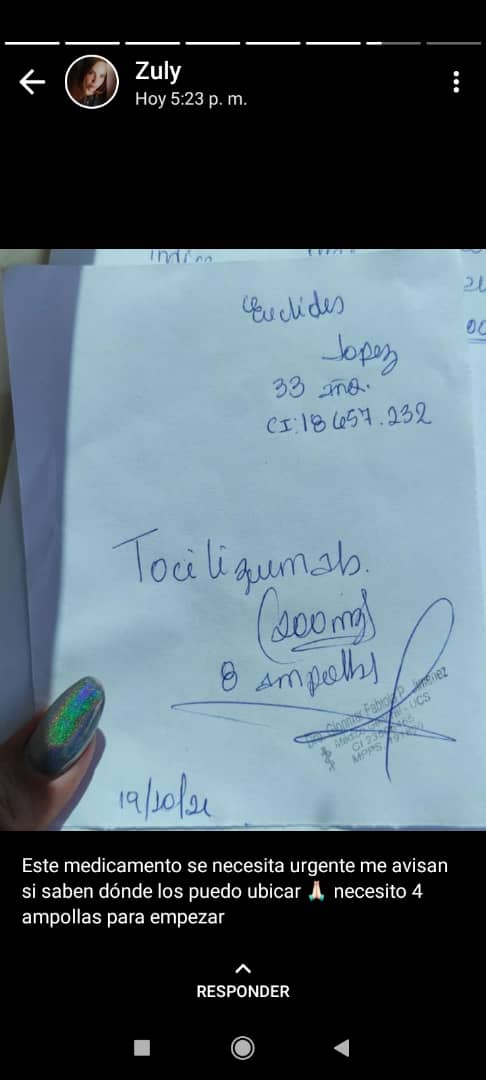 Zuly
Hoy 5:23 p. m.
Indica
Euclides
Lopez
33 año.
CI: 18 657.232
Tocilizumab.
(200mg)
8 ampollas
CI
MPPS
UCS
19/10/21
Este medicamento se necesita urgente me avisan
si saben dónde los puedo ubicar 🙏🏻 necesito 4
ampollas para empezar
RESPONDER